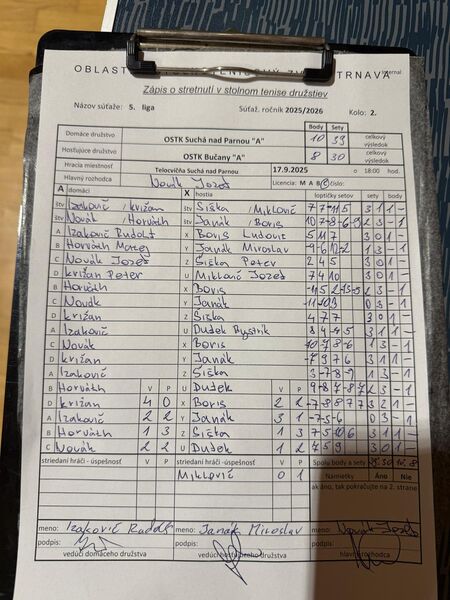 OBLAST TRNAVA
Zápis o stretnutí v stolnom tenise družstiev
Názov súťaže: 5. liga Súťaž. ročník 2025/2026 Kolo: 2.
Body Sety
Domáce družstvo OSTK Suchá nad Parnou "A" 10 39 celkový výsledok
Hosťujúce družstvo OSTK Bučany "A" 8 30 celkový výsledok
Hracia miestnosť Telocvičňa Suchá nad Parnou 17.9.2025 o 18:00 hod.
Hlavný rozhodca Novák Jozef Licencia: M A B C číslo:
A domáci X hostia loptičky setov sety body
štv Izakovič / križan štv Šiška / Miklovič 3 1 1 -
štv Novák / Horváth štv Janák / Boris 2 3 - 1
A Izakovič Rudolf X Boris Ludovit 5 11 7 3 0 1 -
B Horváth Matej Y Janák Miroslav 1 3 - 1
C Novák Jozef Z Šiška Peter 2 4 5 3 0 1 -
D križan Peter U Miklovič Jozef 7 4 10 3 0 1 -
B Horváth X Boris 2 3 - 1
C Novák Y Janák 0 3 - 1
D križan Z Šiška 4 7 7 3 0 1 -
A Izakovič U Dudek Bystrík 3 1 1 -
C Novák X Boris 1 3 - 1
D križan Y Janák -7 9 7 6 3 1 1 -
A Izakovič Z Šiška 3 -7 -8 -9 1 3 - 1
B Horváth V P U Dudek V P 9 -8 -7 -8 1 3 - 1
D križan 4 0 X Boris 2 2 3 2 1 -
A Izakovič 2 2 Y Janák 3 1 -7 -5 -6 0 3 - 1
B Horváth 1 3 Z Šiška 1 3 3 1 1 -
C Novák 2 2 U Dudek 1 2 7 5 9 3 0 1 -
striedaní hráči - úspešnosť V P striedaní hráči - úspešnosť V P Spolu body a sety 39 30 10 8
Miklovič 0 1 Námietky Áno Nie
ak áno, tak pokračujte na 2. strane
meno: Izakovič Rudolf meno: Janák Miroslav meno: Novák Jozef
podpis: podpis: podpis:
vedúci domáceho družstva vedúci hosťujúceho družstva hlavný rozhodca